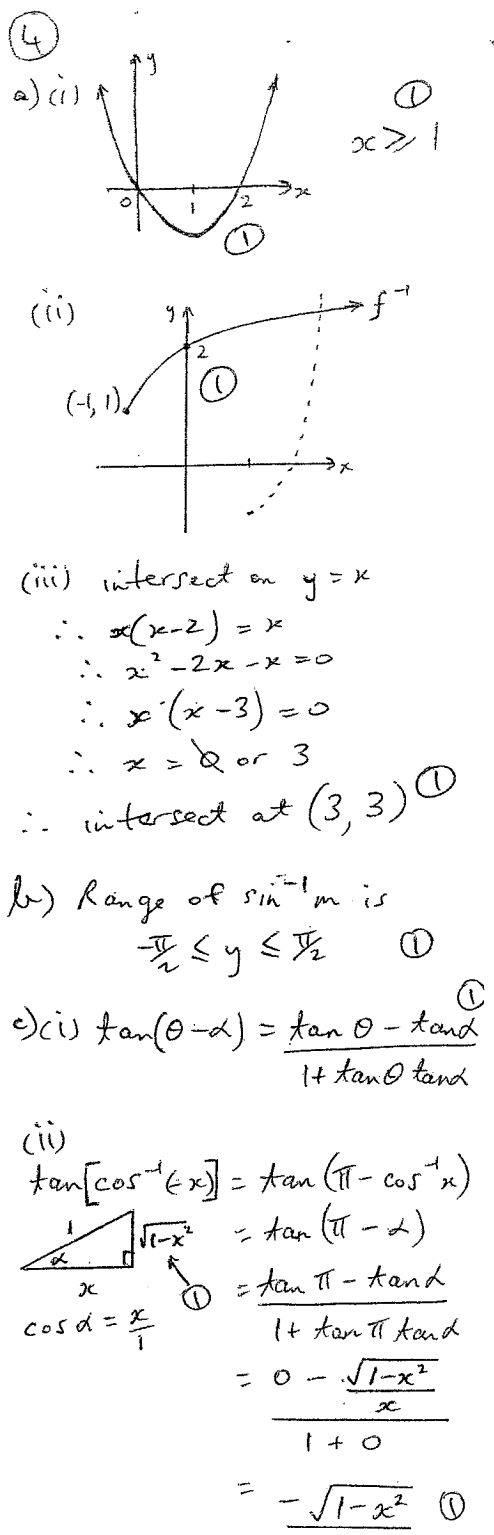 ④
a) (i) y ①
x ≥ 1
0 1 2 x
①
(ii) y f⁻¹
2
①
(-1, 1)
x
(iii) intersect on y = x
∴ x(x-2) = x
∴ x² - 2x - x = 0
∴ x (x - 3) = 0
∴ x = 0 or 3
∴ intersect at (3, 3) ①
b) Range of sin⁻¹m is
-π/2 ≤ y ≤ π/2 ①
c) (i) tan(θ-α) = (tan θ - tan α)/(1 + tan θ tan α) ①
(ii)
tan[cos⁻¹(-x)] = tan(π - cos⁻¹x)
1 α √1-x² x ①
= tan(π - α)
cos α = x/1
= (tan π - tan α)/(1 + tan π tan α)
= (0 - √1-x²/x)/(1 + 0)
= -√1-x² ①